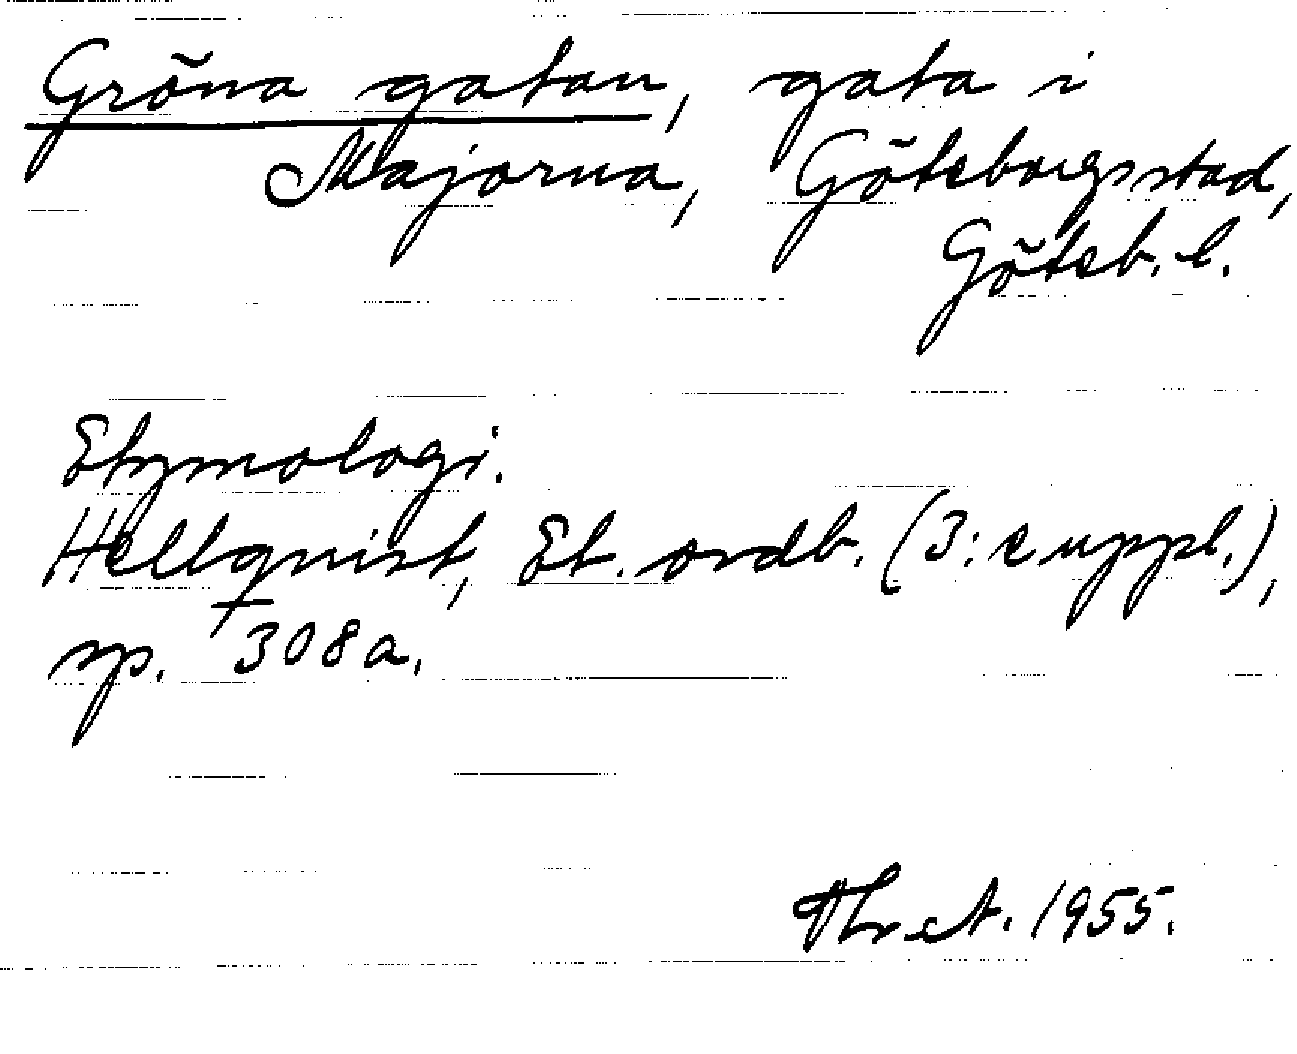 Gröna gatan, gata i
Majorna, Göteborgs stad,
Göteb. l.
Etymologi.
Hellquist, Et. ordb. (3: e uppl.),
sp. 308a.
1955.